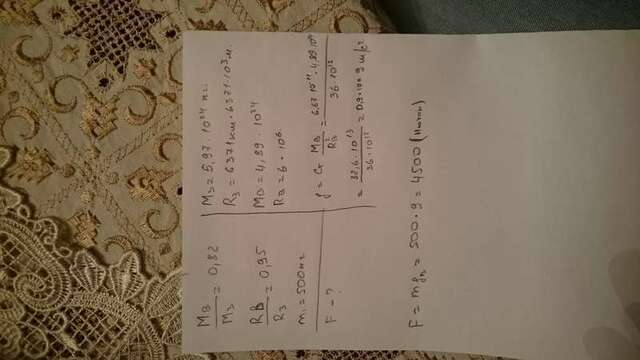 MВ/MЗ = 0,82
RВ/RЗ = 0,95
m₁ = 500 кг
F - ?
MЗ = 5,97 · 10²⁴ кг.
RЗ = 6371 км = 6371 · 10³ м.
MВ = 4,89 · 10²⁴
RВ = 6 · 10⁶
g = G MВ/RВ² = 6,67 · 10⁻¹¹ · 4,89 · 10²⁴/36 · 10¹²
= 32,6 · 10¹³/36 · 10¹² = 0,9 · 10 = 9 м/с²
F = m gв = 500 · 9 = 4500 (Ньютон)